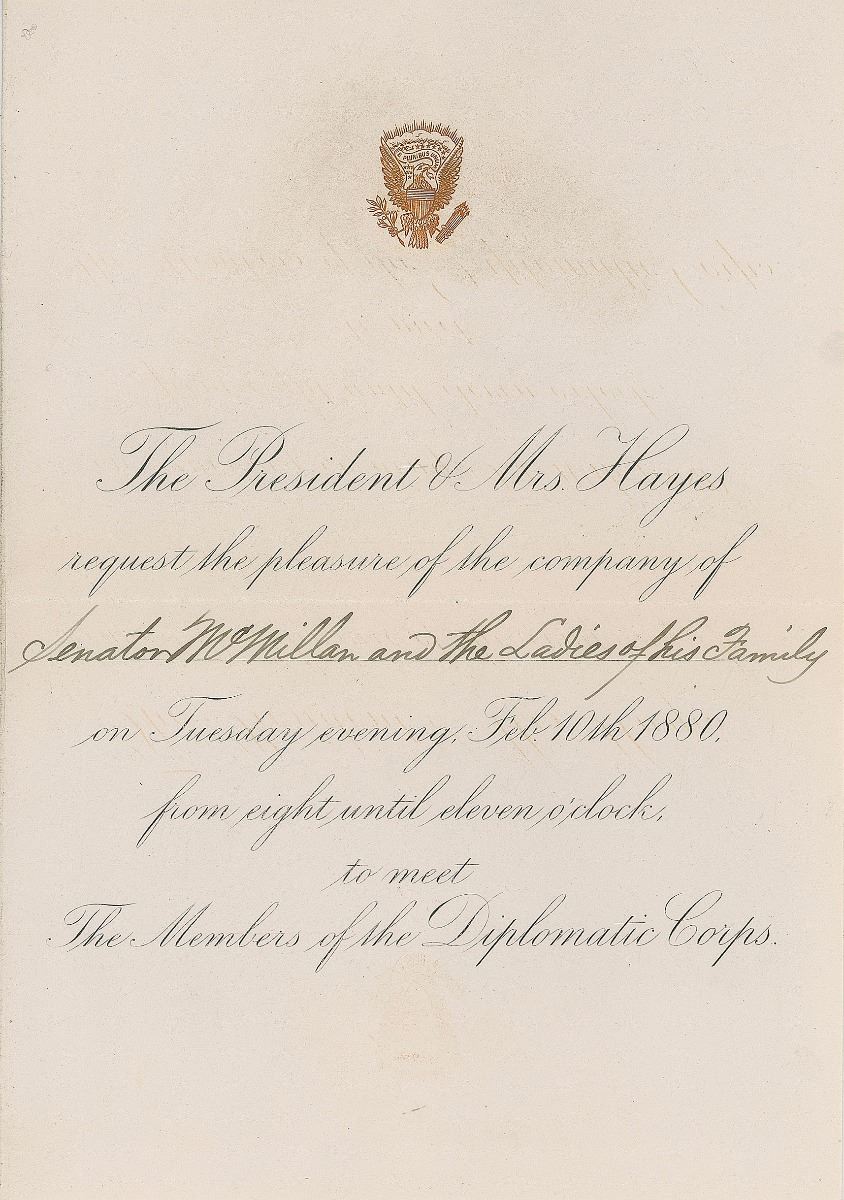 PLURIBUS
The President & Mrs. Hayes
request the pleasure of the company of
Senator McMillan and the Ladies of his Family
on Tuesday evening, Feb. 10th 1880,
from eight until eleven o'clock,
to meet
The Members of the Diplomatic Corps.